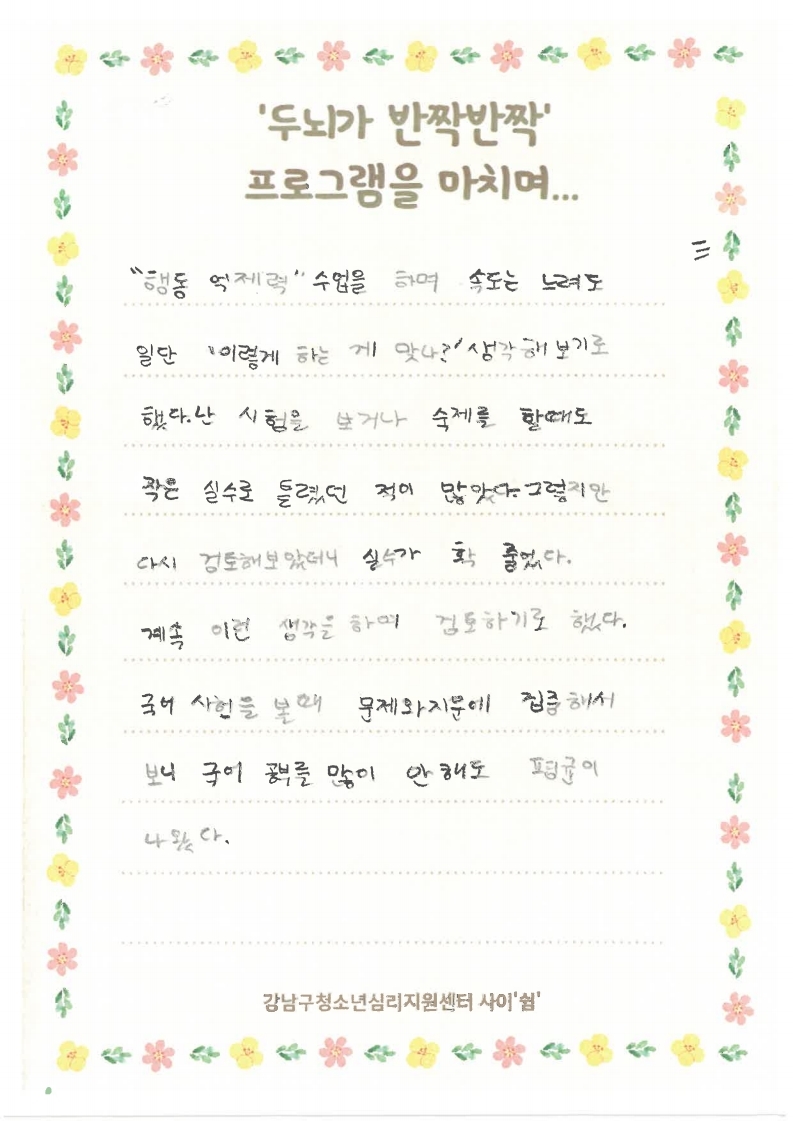 '두뇌가 반짝반짝'
프로그램을 마치며...
"행동 억제력" 수업을 하며 속도는 느려도
일단 '이렇게 하는 게 맞나?' 생각해보기로
했다.난 시험을 보거나 숙제를 할때도
작은 실수로 틀렸던 적이 많았다.그렇지만
다시 검토해보았더니 실수가 확 줄었다.
계속 이런 생각을 하며 검토하기로 했다.
국어 시험을 볼때 문제와지문에 집중해서
보니 국어 공부를 많이 안해도 평균이
나왔다.
강남구청소년심리지원센터 사이'쉼'